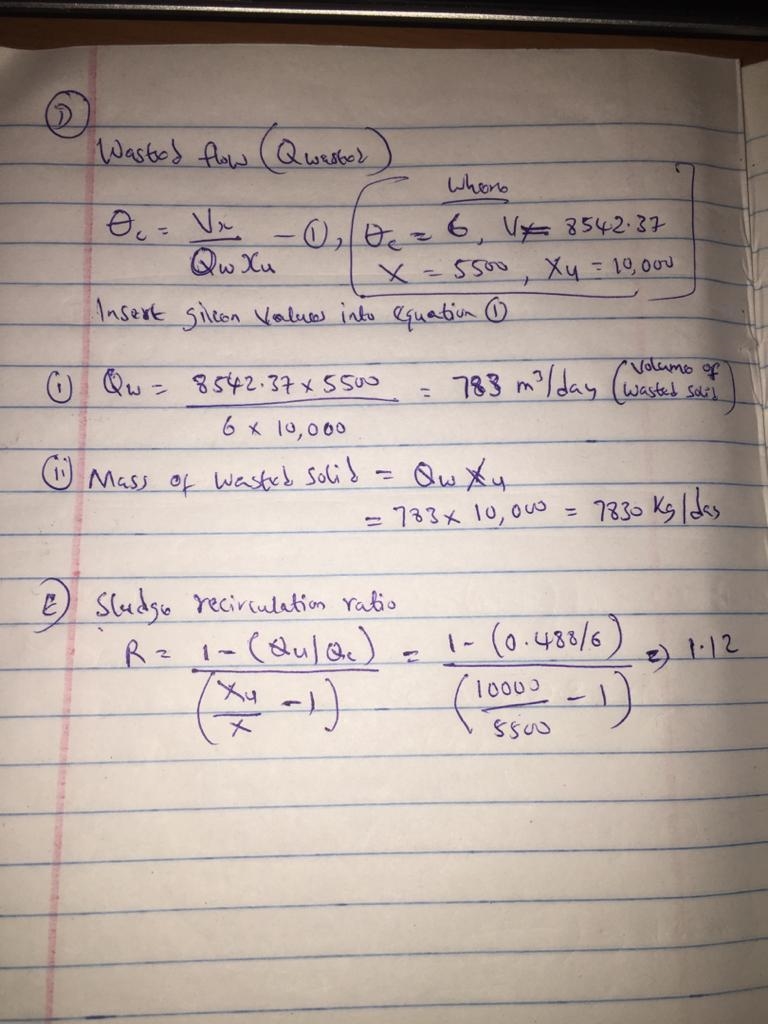 D
Wasted flow (Qwasted)
θc = Vx / QwXu - ①, [where θc = 6, V = 8542.37
X = 5500, Xu = 10,000]
Insert given values into equation ①
(i) Qw = 8542.37 x 5500 / 6 x 10,000 = 783 m³/day (Volume of wasted solid)
(ii) Mass of wasted solid = Qw Xu
= 783 x 10,000 = 7830 Kg/day
E) Sludge recirculation ratio
R = 1 - (θu/θc) / (Xu/X - 1) = 1 - (0.488/6) / (10000/5500 - 1) => 1.12